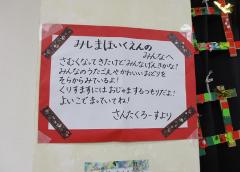 みしまほいくえんの
みんなへ
さむくなってきたけどみんなげんきかな?
みんなのうたごえやかわいいおどりを
そらからみているよ!
くりすますにはおじゃまするつもりだよ!
よいこでまっていてね!
さんたくろーすより